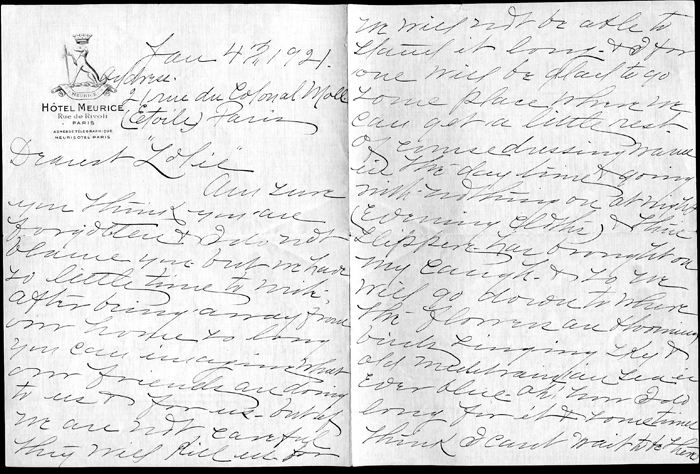 MEURICE
HÔTEL MEURICE
Rue de Rivoli
PARIS
ADRESSE TÉLÉGRAPHIQUE
MEURISOTEL PARIS
Jan 4th, 1921.
Address.
21 rue du Colonal Moll
(Etoile) Paris
Dearest "Lolie"
Am sure
you think you are
forgotten & I do not
blame you but we have
so little time to write.
After being away from
our home so long
you can imagine what
our friends are doing
to us & for us - but if
we are not careful
they will kill us for
we will not be able to
stand it long - & I for
one will be glad to go
some place where we
can get a little rest.
Of course dressing warm
in the daytime & going
with nothing on at night
(evening clothes) & thin
slippers has brought on
my cough - & so we
will go down to where
the flowers are blooming
birds singing sky &
old Mediteranian Sea is
ever blue. Oh, how I do
long for it & sometimes
think I can't wait to